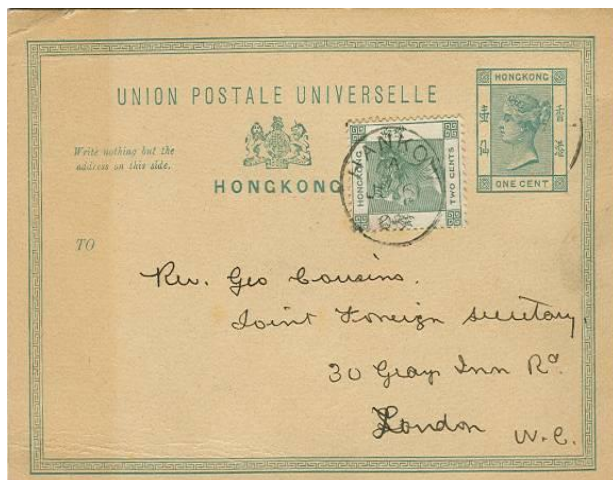 HONGKONG
UNION POSTALE UNIVERSELLE
Write nothing but the
address on this side.
HONGKONG
HONGKONG
TWO CENTS
HANKOW
A
ONE CENT
TO
Rev. Geo Cousins.
Joint Foreign secretary,
30 Grays Inn Rd.
London W.C.